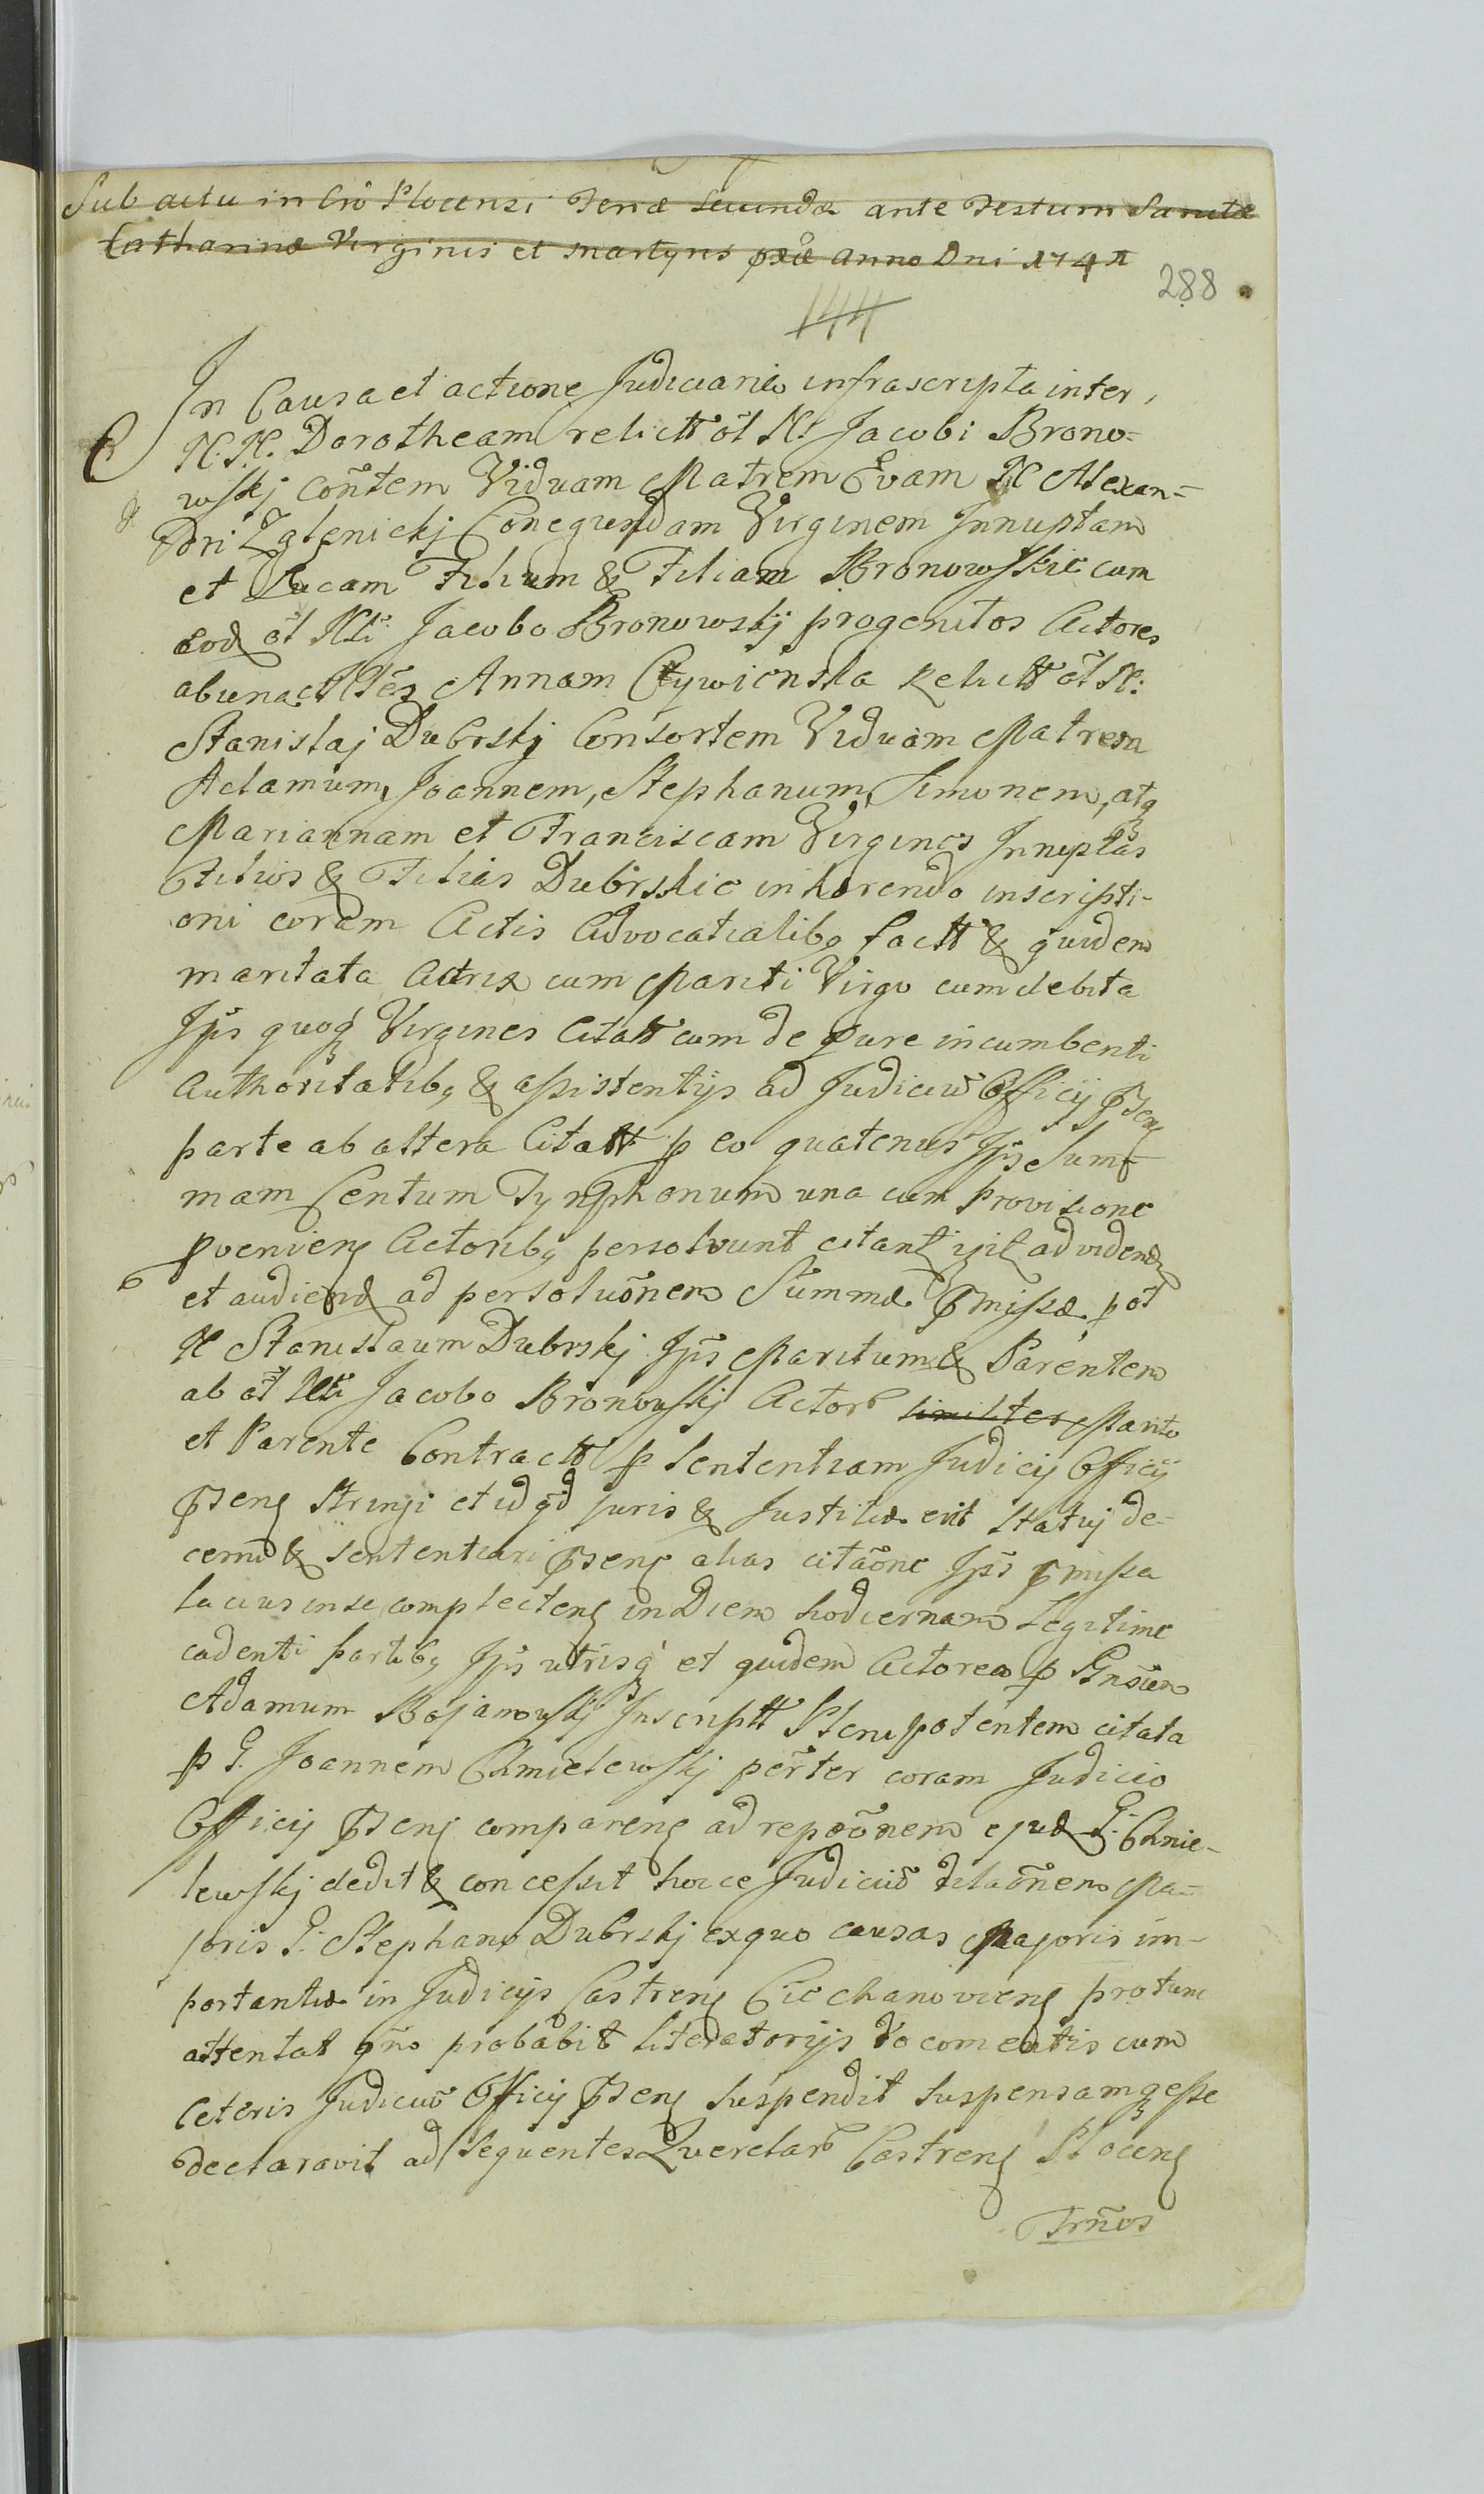 Sub actu in Cro Plocensi Feriæ Secundæ ante Festum Sanctæ
Catharinæ Virginis et Martyris pxã Anno Dni 1741
288
144
In Causa et actione Judiciaria infrascripta inter,
N. N. Dorotheam relictt õl N: Jacobi Brono-
wskj Cõntem Viduam Matrem Evam N Alexan-
dri Zglenickj Conegundam Virginem Innuptam
et Lucam Filium & Filiam Bronowskie cum
eod õl Nli Jacobo Bronowskj progenitos Actores
ab una et Nles Annam Cywienska Relictt õl N:
Stanislaj Dubrskj Consortem Viduam Matrem
Adamum, Joannem, Stephanum, Simonem, atq
Mariannam et Franciscam Virgines Innuptas
Filios & Filias Dubrskie inhærendo inscripti-
oni coram Actis Advocatialibq factt & quidem
maritata Actrix cum Mariti Virgo cum debita
Jps quoq Virgines Citatt cum de Jure incumbenti
Authoritatibq & assistentijs ad Judiciũ Officij pñseñ
parte ab altera Citatt p eo quatenus Jps Sum-
mam Centum Tynphonum una cum provisione
pvenieñ Actoribq persolvunt citant ad videnđ
et audienđ ad persoluõnem Summæ pmissæ p õl
N Stanislaum Dubrskj Jps Maritum & Parentem
ab õl Nli Jacobo Bronowskj Actorꝰ similiter Marito
et Parente Contractt p Sententiam Judicij Officij
pñseñ Strinji et id qd juris & Justitiæ erit Statuj de-
cerni & sententiari pñseñ alias citaõne Jps pmissa
lacius in se complecteñ in Diem hodiernam Legitime
cadenti partibq Jps utrisq et quidem Actorea p Gnsum
Adamum Bojanowskj Inscriptt Plenipotentem citata
p G. Joannem Chmielewskj përter coram Judicio
Officij pñseñ compareñ ad repoõnem ejuđ G: Chmie-
lewskj dedit & concessit hocce Judiciũ dilaõnem Ma-
joris G: Stephano Dubrskj exquo causas Majoris im-
portantiæ in Judicijs Castreñ Ciechanovieñ protunc
attentat qño probabit literatorijs Documentis cum
Ceteris Judiciũ Officij pñseñ Suspendit Suspensamqesse
declaravit ad Sequentes Querelarꝰ Castreñ Ploceñ
Trm̃os